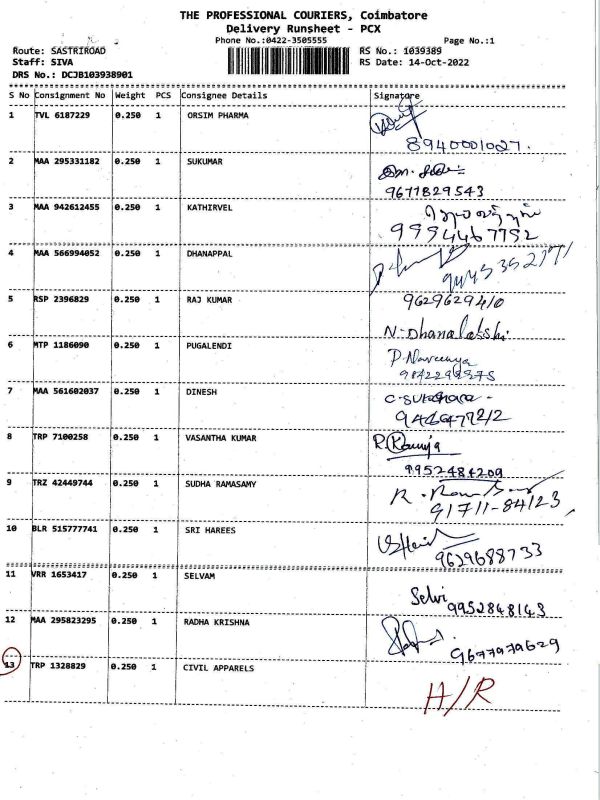 THE PROFESSIONAL COURIERS, Coimbatore
Delivery Runsheet - PCX
Phone No.:0422-3505555 Page No.:1
Route: SASTRIROAD RS No.: 1039389
Staff: SIVA RS Date: 14-Oct-2022
DRS No.: DCJB103938901
S No Consignment No Weight PCS Consignee Details Signature
1 TVL 6187229 0.250 1 ORSIM PHARMA
8940001027.
2 MAA 295331182 0.250 1 SUKUMAR
9671829543
3 MAA 942612455 0.250 1 KATHIRVEL
9994467792
4 MAA 566994052 0.250 1 DHANAPPAL
5 RSP 2396829 0.250 1 RAJ KUMAR 9629629410
N-Dhanalakshi
6 MTP 1186090 0.250 1 PUGALENDI P.Naveenya
7 MAA 561602037 0.250 1 DINESH
8 TRP 7100258 0.250 1 VASANTHA KUMAR
9952484209
9 TRZ 42449744 0.250 1 SUDHA RAMASAMY
91711-84123
10 BLR 515777741 0.250 1 SRI HAREES
9629688733
11 VRR 1653417 0.250 1 SELVAM
Selvi 9952848143
12 MAA 295823295 0.250 1 RADHA KRISHNA
9677979629
13 TRP 1328829 0.250 1 CIVIL APPARELS
H/R